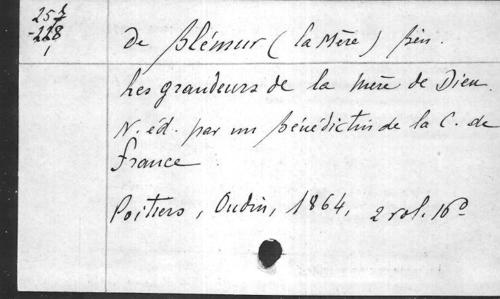 25
-228
1
de Blémur (la Mère) Bén.
Les grandeurs de la mère de Dieu
N. éd. par un Bénédictin de la C. de
France
Poitiers, Oudin, 1864, 2 vol. 16°